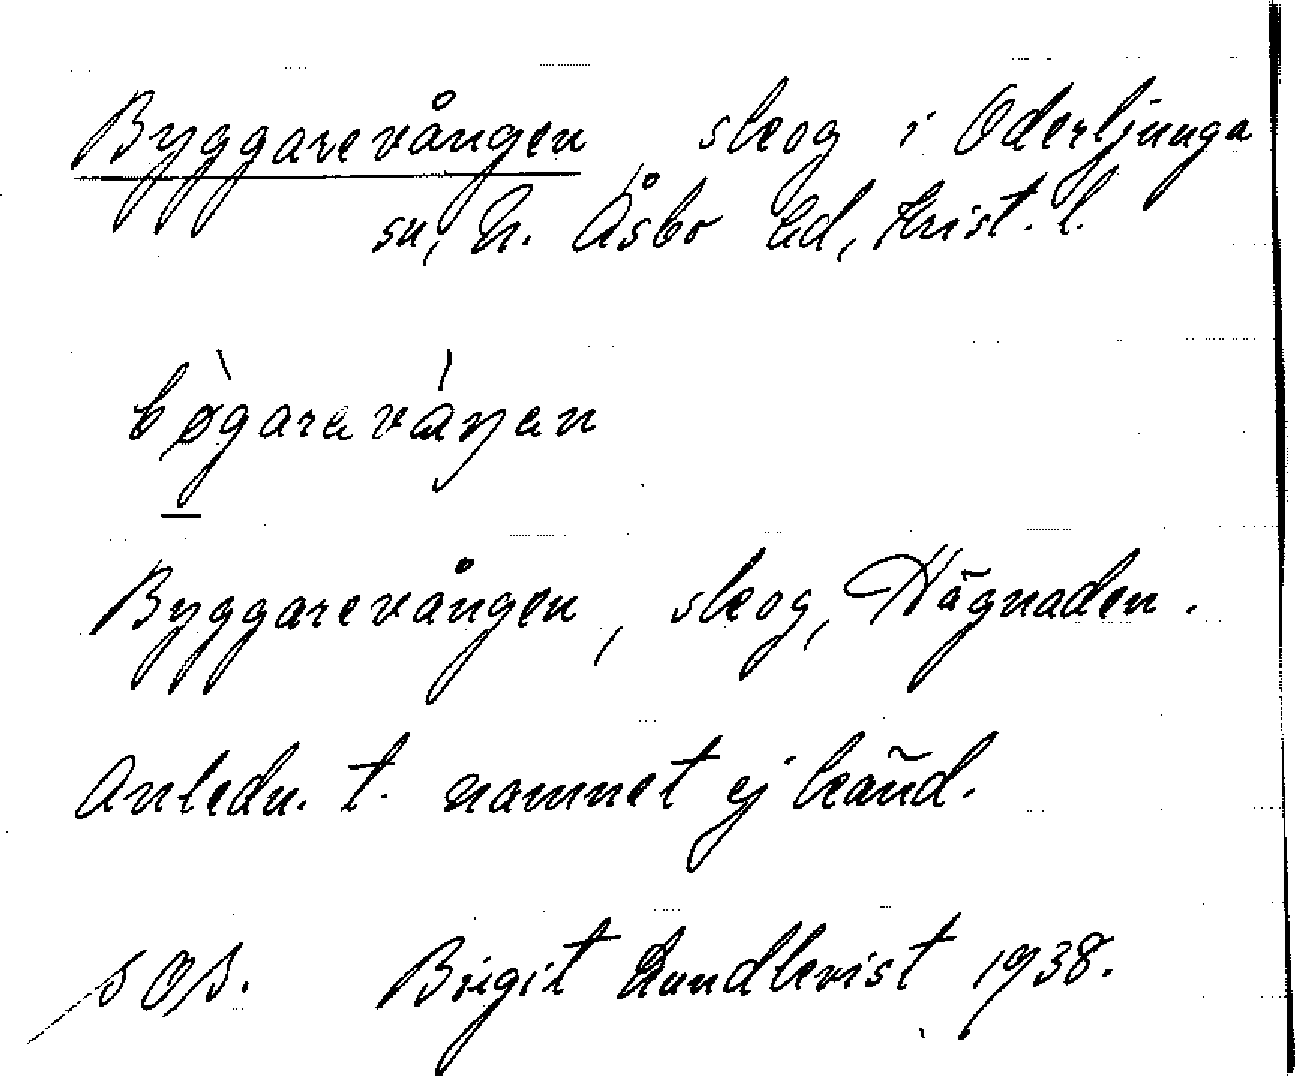 Byggarevången, skog i Oderljunga
sn, N. Åsbo hd, Krist. l.
bø̀garaváŋan
Byggarevången, skog, Hägnaden.
Anledn. t. namnet ej känd.
SOS. Birgit Lundkvist 1938.